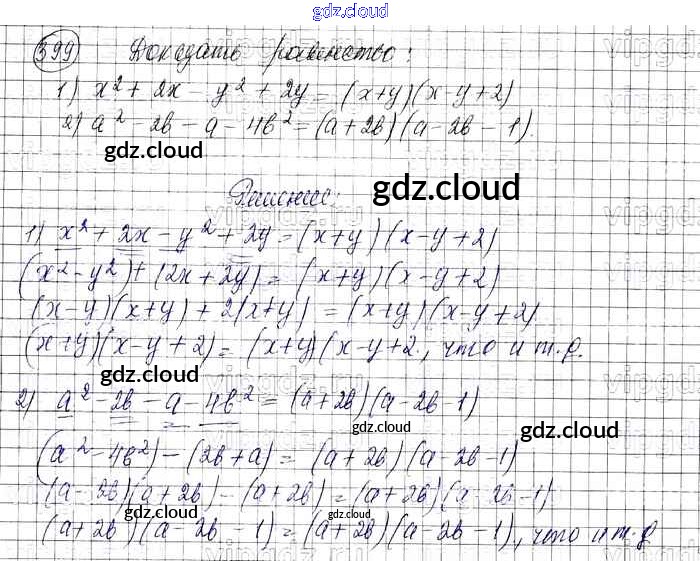 gdz.cloud
399 Доказать равенство:
1) x² + 2x - y² + 2y = (x+y)(x-y+2)
2) a² - 2b - a - 4b² = (a+2b)(a-2b-1).
gdz.cloud
Решение:
gdz.cloud
1) x² + 2x - y² + 2y = (x+y)(x-y+2)
(x² - y²) + (2x + 2y) = (x+y)(x-y+2)
(x-y)(x+y) + 2(x+y) = (x+y)(x-y+2)
(x+y)(x-y+2) = (x+y)(x-y+2, что и т.д.
gdz.cloud
gdz.cloud
2) a² - 2b - a - 4b² = (a+2b)(a-2b-1)
gdz.cloud
gdz.cloud
(a² - 4b²) - (2b+a) = (a+2b)(a-2b-1)
(a-2b)(a+2b) - (a+2b) = (a+2b)(a-2b-1)
gdz.cloud
(a+2b)(a-2b-1) = (a+2b)(a-2b-1), что и т.д
gdz.cloud